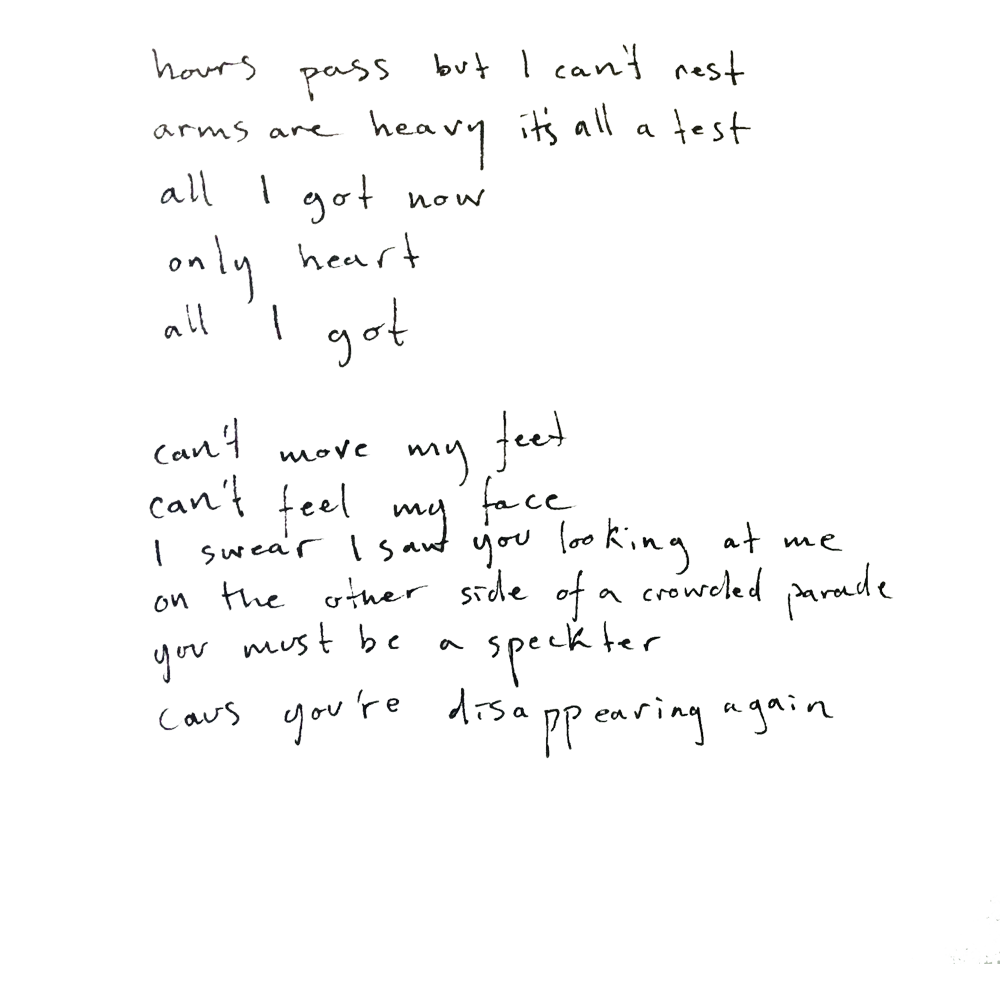 hours pass but I can't rest
arms are heavy it's all a test
all I got now
only heart
all I got
can't move my feet
can't feel my face
I swear I saw you looking at me
on the other side of a crowded parade
you must be a speckter
caus you're disappearing again